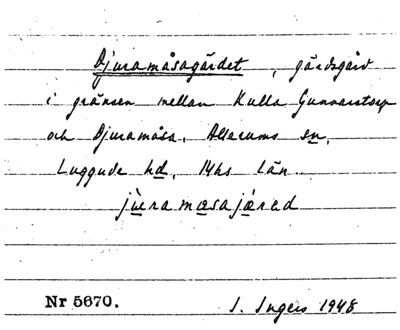 Djuramåsagärdet, gärdsgård
i gränsen mellan Kulla Gunnarstorp
och Djuramåsa, Allerums sn,
Luggude hd, Mhs län
jùramọsajæ̀red
Nr 5670. I. Ingers 1948